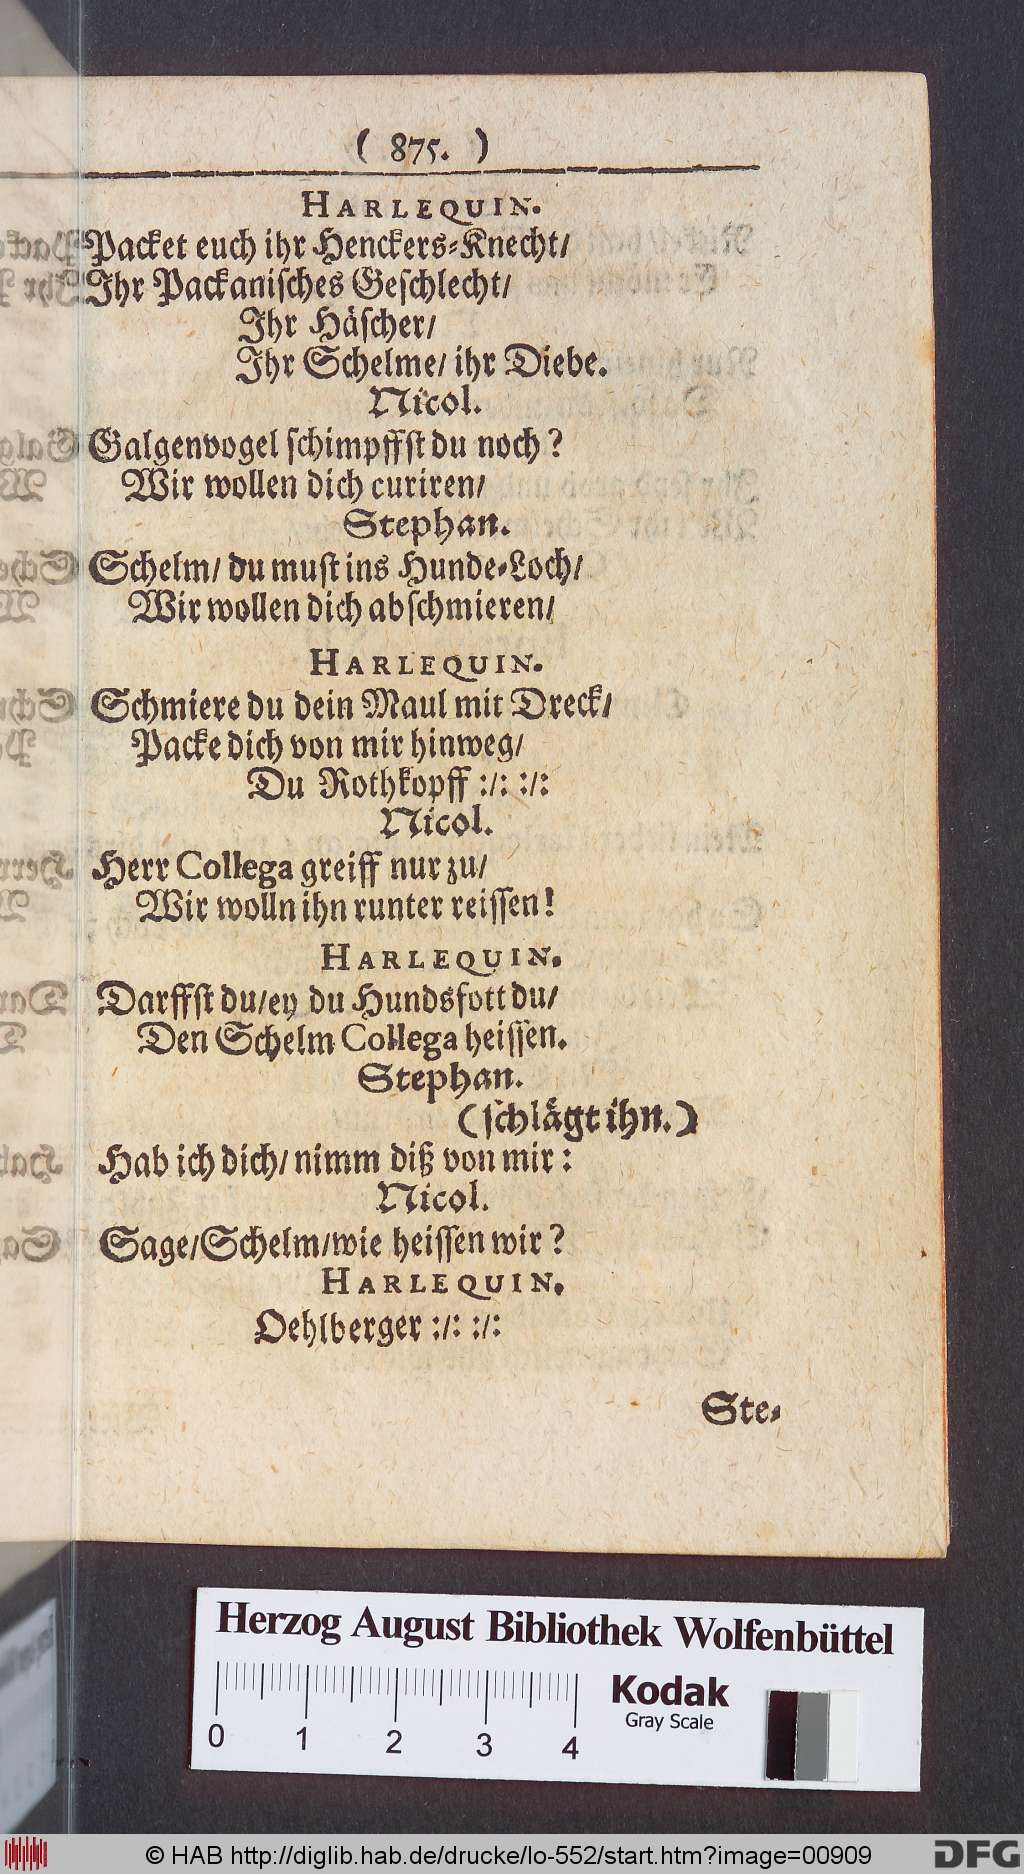 ( 875. )
HARLEQUIN.
Packet euch ihr Henckers-Knecht/
Ihr Packanisches Geschlecht/
Ihr Häscher/
Ihr Schelme/ ihr Diebe.
Nicol.
Galgenvogel schimpffst du noch?
Wir wollen dich curiren/
Stephan.
Schelm/ du must ins Hunde-Loch/
Wir wollen dich abschmieren/
HARLEQUIN.
Schmiere du dein Maul mit Dreck/
Packe dich von mir hinweg/
Du Rothkopff :/: :/:
Nicol.
Herr Collega greiff nur zu/
Wir wolln ihn runter reissen!
HARLEQUIN.
Darffst du/ ey du Hundsfott du/
Den Schelm Collega heissen.
Stephan.
(schlägt ihn.)
Hab ich dich/ nimm diß von mir:
Nicol.
Sage/ Schelm/ wie heissen wir?
HARLEQUIN.
Oehlberger :/: :/:
Ste-
Herzog August Bibliothek Wolfenbüttel
0 1 2 3 4
Kodak
Gray Scale
© HAB http://diglib.hab.de/drucke/lo-552/start.htm?image=00909
DFG